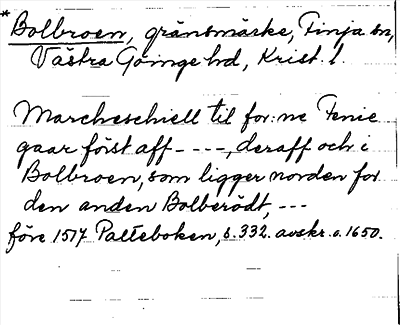 * Bolbroen, gränsmärke, Finja sn,
Västra Göinge hd, Krist. l.
Marcheschiell til for:ne Fenie
gaar först aff - - - -, deraff och i
Bolbroen, som ligger norden for
den anden Bolberödt, - - -
före 1517 Palteboken, s. 332. avskr. o. 1650.